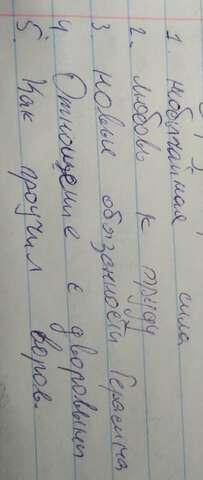 1. необычайная сила
2. любовь к труду
3. новые обязанности Герасима
4 Отношение с дворовыми
5. Как проучил воров.